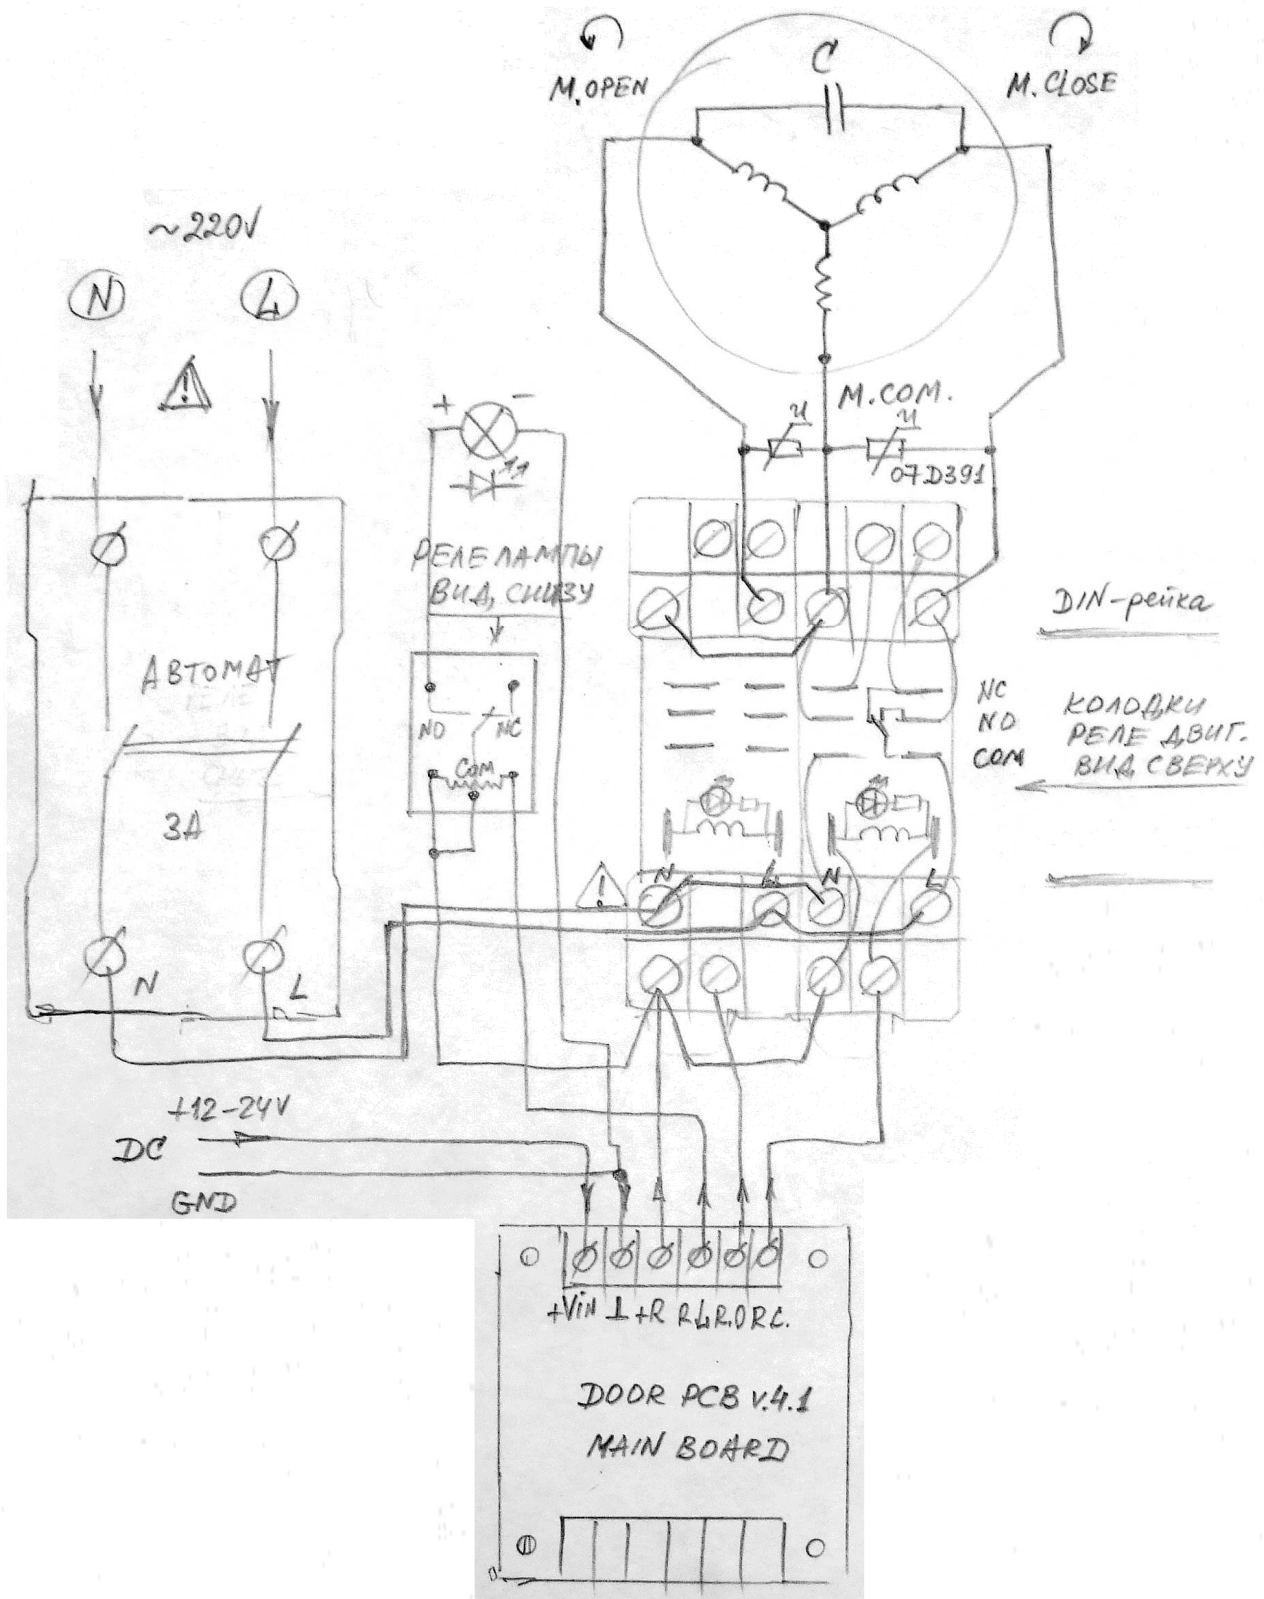 M.OPEN
C
M.CLOSE
~220V
N
L
!
+
-
M.COM.
u
u
07D391
РЕЛЕ ЛАМПЫ
ВИД СНИЗУ
DIN-рейка
АВТОМАТ
3А
NO
NC
COM
NC
NO
COM
КОЛОДКИ
РЕЛЕ ДВИГ.
ВИД СВЕРХУ
!
N
L
N
L
N
L
+12-24V
DC
GND
+Vin ⊥ +R R.L R.O R.C.
DOOR PCB v.4.1
MAIN BOARD